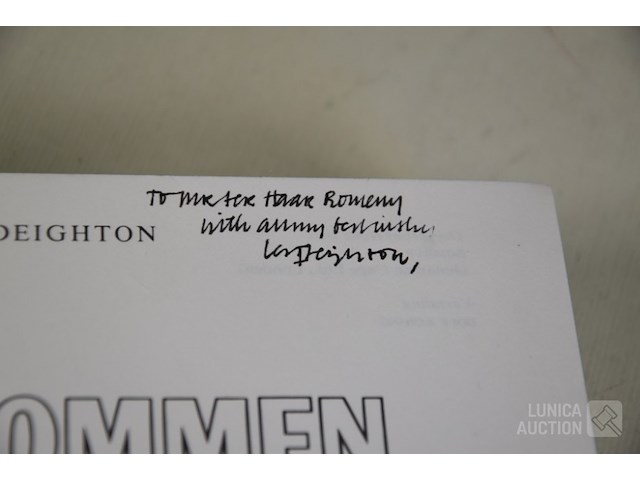 To Mr ter Haar Romeny
with all my best wishes
Len Deighton,
DEIGHTON
OMMEN
LUNICA
AUCTION